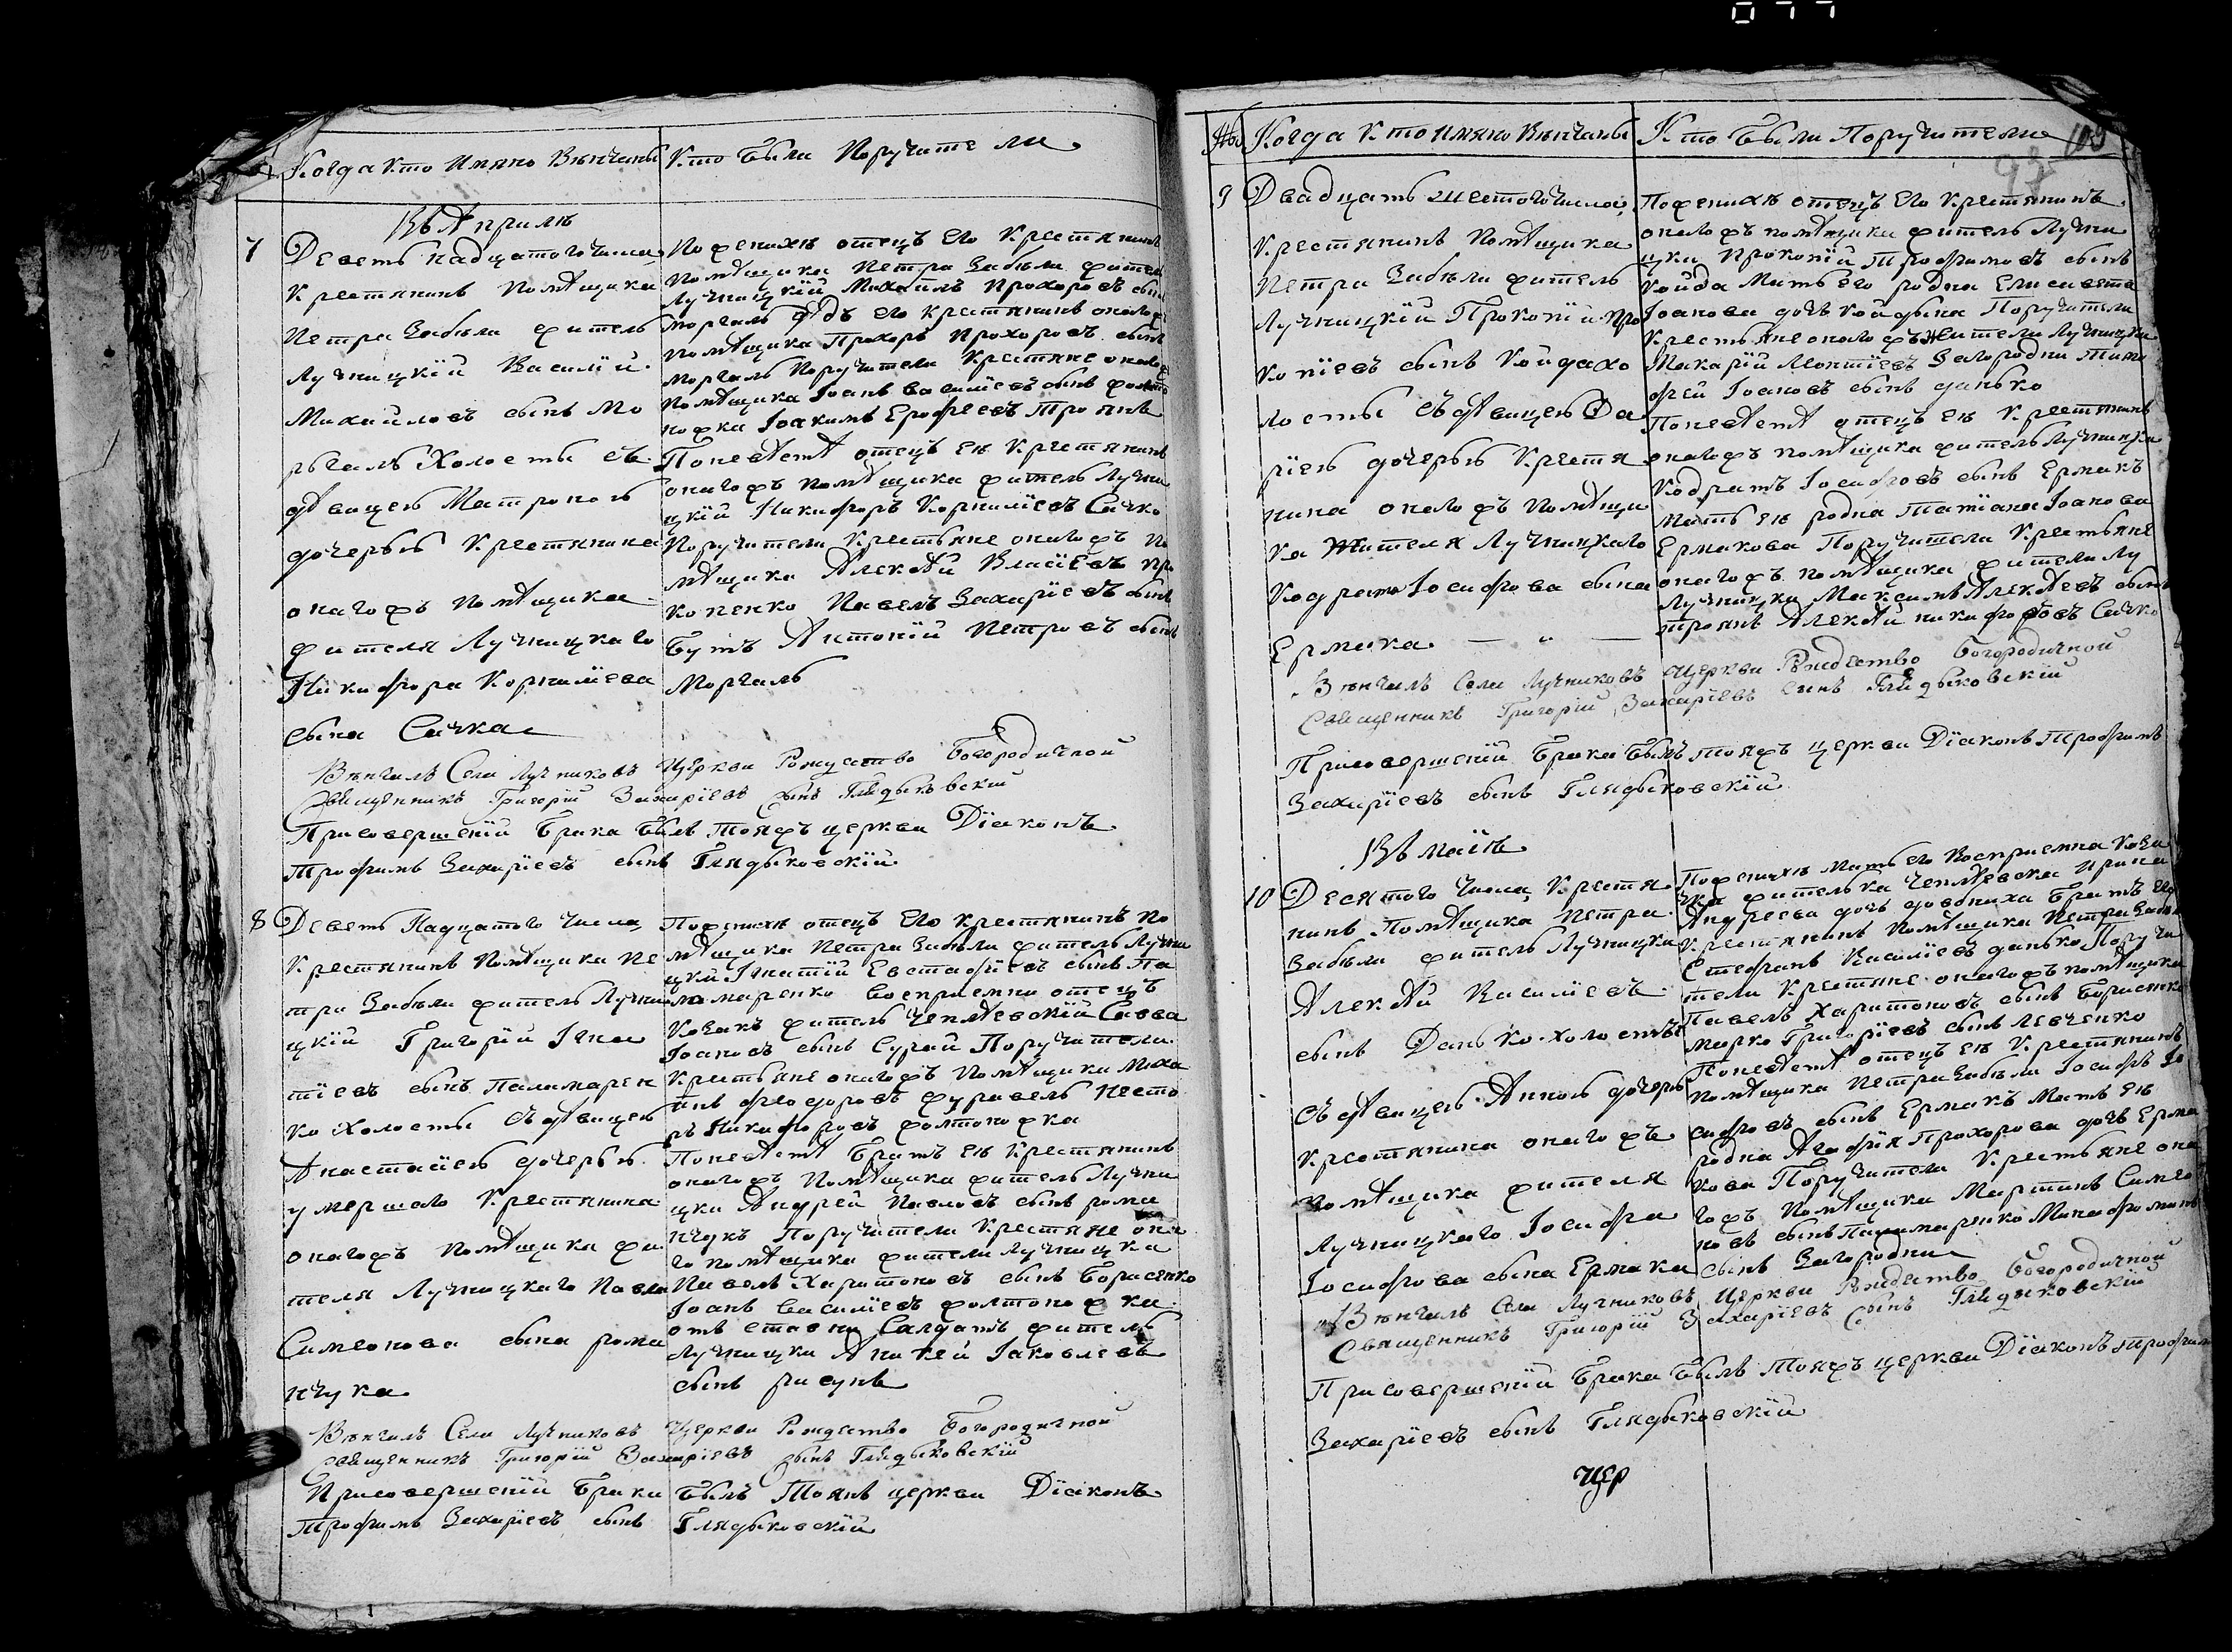 Когда Кто Имяно Вѣнчаны
Кто Были Поручите ли
Въ Априлѣ
7
Деветь надцатого числа
Крестянинъ помѣщика
Петра Забѣли житель
Лучницкїй Василїй
Михайловъ сынъ Мо
ргаль Холосты съ
дѣвицею Матроною
дочерью Крестянина
оногожъ помѣщика
жителя Лучницкаго
Никифора Корнилїева
сына Сачка
По женихѣ отецъ Его Крестянинъ
помѣщика Петра Забѣли житель
Лучницкїй Михаилъ Прохоровъ сынъ
Моргаль дѣдъ его Крестянинъ оного
помѣщика Прохоръ Прохоровъ сынъ
Моргаль Поручители Крестяне оного
помѣщика Іоанъ Василїевъ сынъ
ножка Іоакимъ Ерофеевъ Троянъ
По невѣстѣ отецъ Ея Крестянинъ
оногожъ помѣщика житель Лучни
цкїй Никифоръ Корнилїевъ Сачко
Поручители Крестьяне оногожъ по
мѣщика Алекѣй Власїевъ про
копенко Павелъ Захарїевъ сынъ
Бутъ Антонїй Петровъ сынъ
Моргаль
Вѣнчалъ Села Лучниковъ Церкви Рождество Богородичной
Священникъ Григорїй Захарїевъ Сынъ Глядыковскїй
При совершенїи Брака Былъ тояжъ церкви Дїаконъ
Трофимъ Захарїевъ сынъ Глядыковскїй
8
Деветь Надцатого Числа
Крестянинъ помѣщика Пе
тра Забѣли житель Лучни
цкїй Григорїй Ігна
тїевъ сынъ Паламарен
ко Холосты Съ дѣвицею
Анастасїею дочерью
умершаго Крестянина
оногожъ помѣщика жи
теля Лучницкаго Павла
Симеонова сына рома
нчука
По женихѣ отецъ Его Крестянинъ по
мѣщика Петра Забѣли житель Лучни
цкїй Ігнатїй Евстафїевъ сынъ Па
ламаренко Восприемни отецъ
Козакъ житель Чеплѣевскїй Савва
Іоановъ сынъ Сурай Поручители
Крестьяне оногожъ помѣщика Миха
илъ Феодоровъ журавель Несто
ръ Никифоровъ жолтоножка
По невѣстѣ Братъ Ея Крестянинъ
оногожъ помѣщика житель Лучни
цки Андрей Павловъ сынъ рома
нчукъ Поручители Крестяне оно
го помѣщика жители Лучницка
Павелъ Харитоновъ сынъ Борисенко
Іоанъ Василїевъ жолтоножка
отъ ставни Салдатъ житель
Лучницки Аникей Іаковлевъ
сынъ рисунъ
Вѣнчалъ Села Лучниковъ Церкви Рождество Богородичной
Священникъ Григорїй Захарїевъ Сынъ Глядыковскїй
При совершенїи Брака Былъ Тояжъ церкви Дїаконъ
Трофимъ Захарїевъ сынъ Глядыковскїй
Когда Кто Имяно Вѣнчаны
Кто Были Поручители
9
Двадцать шестого числа
Крестянинъ помѣщика
Петра Забѣли житель
Лучницкїй Прокопїй Про
копїевъ сынъ Койда хо
лосты Съ дѣвицею Да
рїею дочерью Крестя
нина оногожъ помѣщи
ка жителя Лучницкаго
Кодрата Іосифова сына
Ермака
По женихѣ отецъ Его Крестянинъ
оногожъ помѣщика житель Лучни
цки Прокопїй Трофимовъ сынъ
Койда Мать Его родна Елисавета
Іоанова дочь Койдына Поручители
Крестьяне оногожъ жители Лучницки
Макарїй Леонтїевъ Загородни Тимо
фей Іоановъ сынъ данько
По невѣстѣ отецъ Ея Крестянинъ
оногожъ помѣщика житель Лучницки
Кодратъ Іосифовъ сынъ Ермакъ
Мать Ея родна Татїана Іоанова
Ермакова Поручители Крестьяне
оногожъ помѣщика жители Лу
Лучницки Максимъ Алекѣевъ сынъ
троянъ Алекѣй Никифоровъ Сачко
Вѣнчалъ Села Лучниковъ Церкви Рождество Богородичной
Священникъ Григорїй Захарїевъ Сынъ Глядыковскїй
При совершенїи Брака Былъ тояжъ церкви Дїаконъ Трофимъ
Захарїевъ сынъ Глядыковскїй
Въ маїѣ
10
Десятого Числа Крестя
нинъ Помѣщика Петра
Забѣли житель Лучницки
Алекѣй Василїевъ
сынъ Данько холостъ
Съ дѣвицею Анною дочерью
Крестянина оногожъ
помѣщика жителя
Лучницкаго Іосифа
Іосифова сына Ермака
По женихѣ мать его Восприемна Коза
чка жителька Чеплѣевска Ирина
Андреева дочь довбниха Братъ Его
Крестянинъ помѣщика Петра Забѣли
Стефанъ Василїевъ данько Поручи
тели Крестяне оногожъ помѣщика
Павелъ Харитоновъ сынъ Борисенко
Марко Григорїевъ сынъ Левченко
По невѣстѣ отецъ Ея Крестянинъ
помѣщика Петра Забѣли Іосифъ Іо
сифовъ сынъ Ермакъ Мать Ея
родна Агафїя Прохорова дочь Ерма
кова Поручители Крестьяне оно
гожъ Помѣщика Мартинъ Симео
новъ сынъ Паламаренко
сынъ Загородни
Вѣнчалъ Села Лучниковъ Церкви Рождество Богородичной
Священникъ Григорїй Захарїевъ Сынъ Глядыковскїй
При совершенїи Брака Былъ Тояжъ церкви Дїаконъ Трофимъ
Захарїевъ сынъ Глядыковскїй
цер